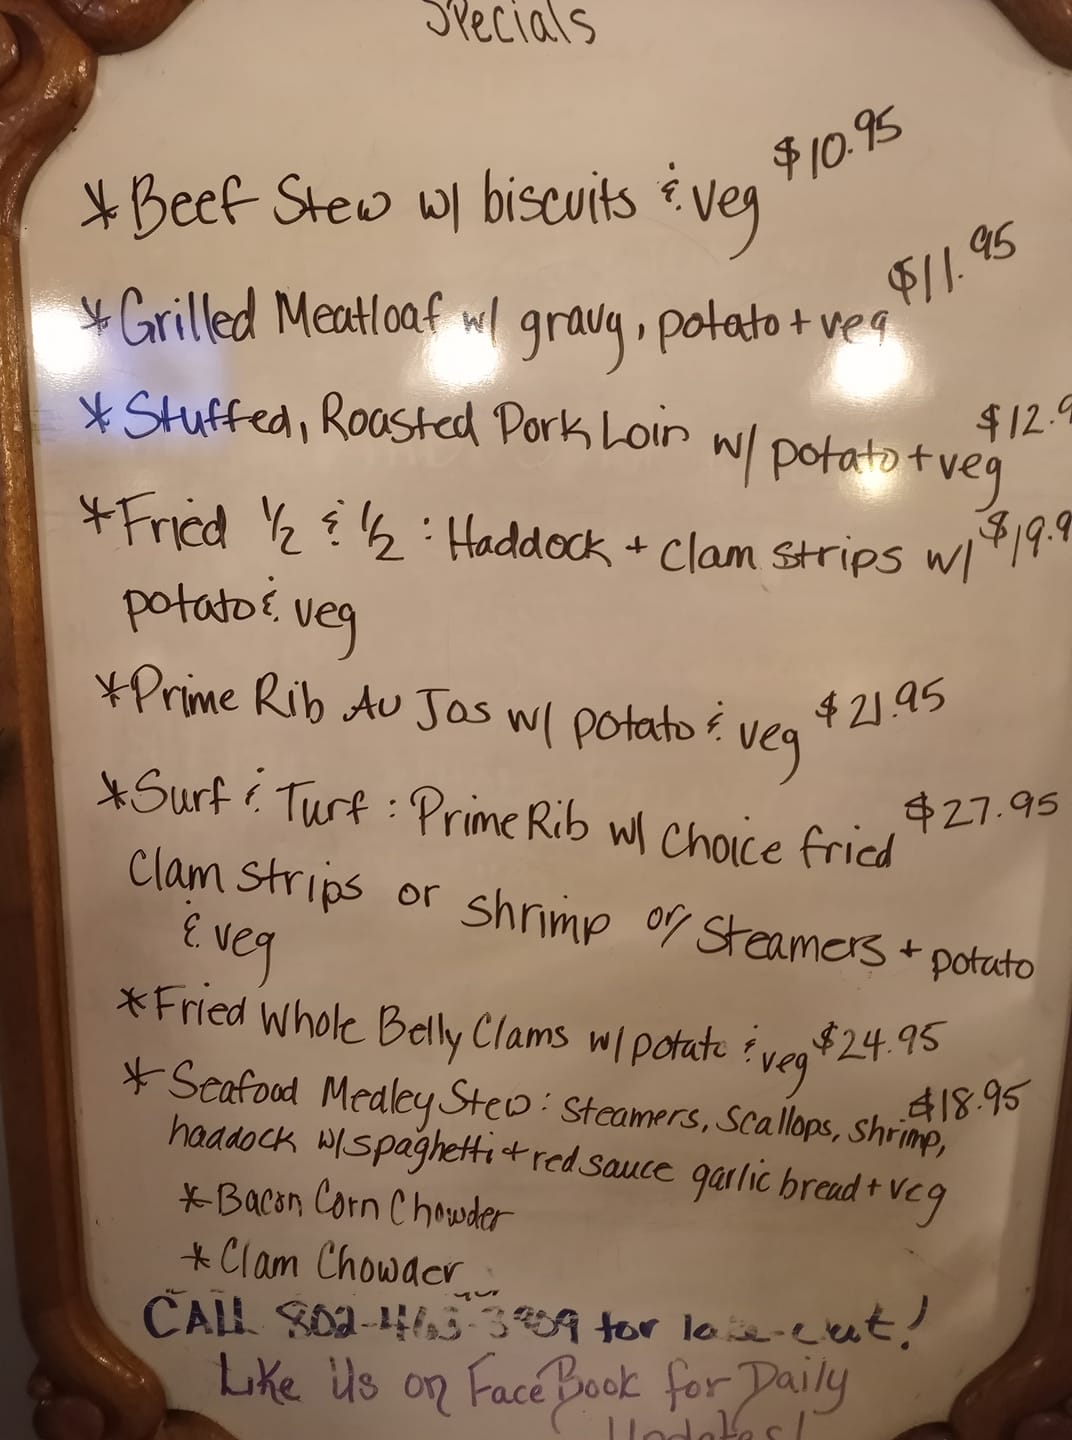 Specials
*Beef Stew w/ biscuits & veg $10.95
*Grilled Meatloaf w/ gravy, potato + veg $11.95
*Stuffed, Roasted Pork Loin w/ potato + veg $12.9
*Fried 1/2 & 1/2 : Haddock + Clam Strips w/ $19.9
potato & veg
*Prime Rib Au Jos w/ potato & veg $21.95
*Surf & Turf : Prime Rib w/ choice fried $27.95
Clam strips or shrimp or steamers + potato
& veg
*Fried Whole Belly Clams w/ potato & veg $24.95
*Seafood Medley Stew : steamers, scallops, shrimp, $18.95
haddock w/ spaghetti + red sauce garlic bread + veg
*Bacon Corn Chowder
*Clam Chowder
CALL for
Like Us on FaceBook for Daily
Updates!